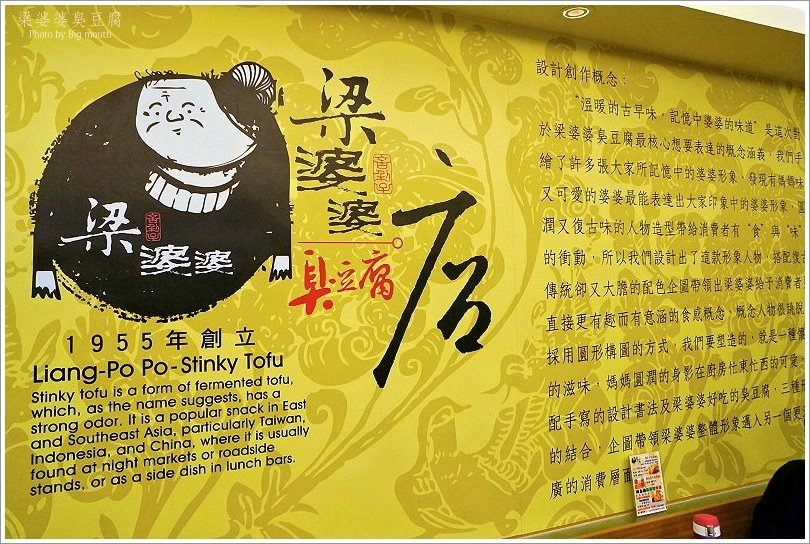 梁婆婆臭豆腐
Photo by Big mouth
梁
婆婆
梁
婆
婆
臭豆腐
店
1955年創立
Liang-Po Po-Stinky Tofu
Stinky tofu is a form of fermented tofu,
which, as the name suggests, has a
strong odor. It is a popular snack in East
and Southeast Asia, particularly Taiwan,
Indonesia, and China, where it is usually
found at night markets or roadside
stands, or as a side dish in lunch bars.
設計創作概念：
"溫暖的古早味，記憶中婆婆的味道"是這次對
於梁婆婆臭豆腐最核心想要表達的概念涵義，我們手
繪了許多張大家所記憶中的婆婆形象，發現有媽媽味
又可愛的婆婆最能表達出大家印象中的婆婆形象，圓
潤又復古味的人物造型帶給消費者有"食"與"味"
的衝動，所以我們設計出了這款形象人物，搭配復古
傳統卻又大膽的配色企圖帶領出梁婆婆給予消費者
直接更有趣而有意涵的食感概念，概念人物很跳脫
採用圓形構圖的方式，我們要塑造的，就是一種
的滋味，媽媽圓潤的身影在廚房忙東忙西的可愛
配手寫的設計書法及梁婆婆好吃的臭豆腐，三種
的結合，企圖帶領梁婆婆整體形象邁入另一個更
廣的消費層面